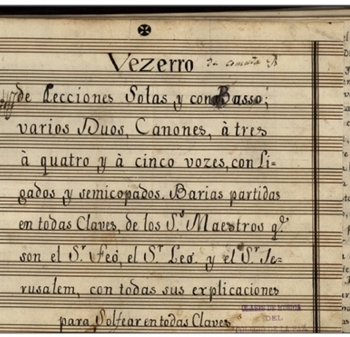 Vezerro
de Lecciones Solas y con Basso;
varios Duos, Canones, à tres
à quatro y à cinco vozes, con Li-
gados y semicopados. Barias partidas
en todas Claves, de los S.s Maestros q.e
son el S.r Feo, el S.r Leo. y el S.r Je-
rusalem, con todas sus explicaciones
para Solfear en todas Claves
DEL